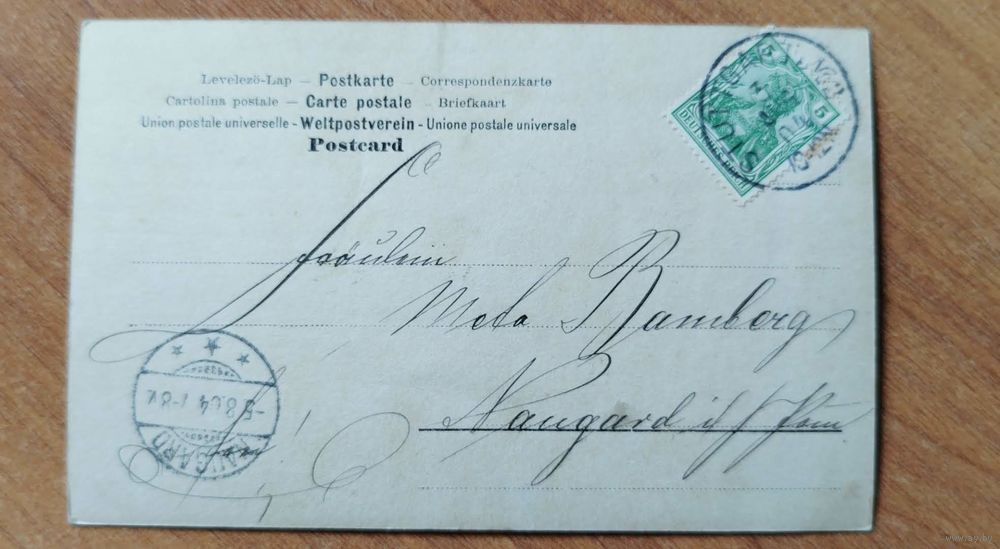 Levelező-Lap — Postkarte — Correspondenzkarte
Cartolina postale — Carte postale — Briefkaart
Union postale universelle - Weltpostverein - Unione postale universale
Postcard
5 5
DEUTSCHES REICH
Fräulein
Meta Ramberg
Naugard i/ Pom
NAUGARD
-5.8.04.7-8V.
www.ay.by